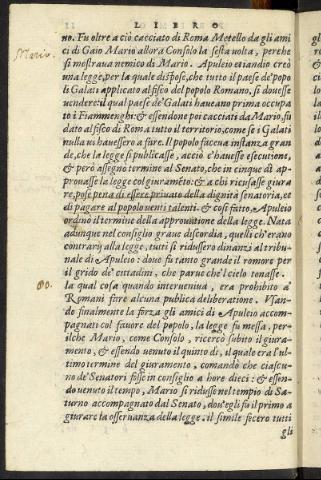 LIBRO
no. Fu oltre a ciò cacciato di Roma Metello da gli ami
ci di Gaio Mario allora Consolo la sesta volta, perche
Mario.
si mostraua nemico di Mario. Apuleio etiandio creò
una legge, per la quale dispose, che tutto il paese de' popo
li Galati applicato al fisco del popolo Romano, si douesse
uendere: il qual paese de' Galati haueano prima occupa
to i Fiammenghi: & essendone poi cacciati da Mario, fu
dato al fisco di Roma tutto il territorio, come se i Galati
nulla ui hauessero a fare. Il popolo faceua instanza gran
de, che la legge si publicasse, acciò c'hauesse esecutione,
& però assegno termine al Senato, che in cinque dì ap-
prouasse la legge col giuramẽto: & a chi ricusasse giura
re, pose pena di essere priuato della dignità senatoria, et
di pagare al popolo uenti talenti. & così fatto, Apuleio
ordinò il termine della approuatione della legge. Nata
adunque nel consiglio graue discordia, quelli ch'erano
contrarij alla legge, tutti si ridussero dinanzi al tribu-
nale di Apuleio: doue fu tanto grande il romore per
il grido de' cittadini, che parue che'l cielo tenasse.
la qual cosa quando interueniua, era prohibito a'
Romani fare alcuna publica deliberatione. Vsan-
do finalmente la forza gli amici di Apuleio accom-
pagnati col fauore del popolo, la legge fu messa, per-
ilche Mario, come Consolo, ricercò subito il giura-
mento, & essendo uenuto il quinto dì, il quale era l'ul-
timo termine del giuramento, comandò che ciascu-
no de' Senatori fosse in consiglio a hore dieci: & essen-
do uenuto il tempo, Mario si ridusse nel tempio di Sa-
turno accompagnato dal Senato, dou'egli fu il primo a
giurare la osseruanza della legge. il simile fecero tutti
gli